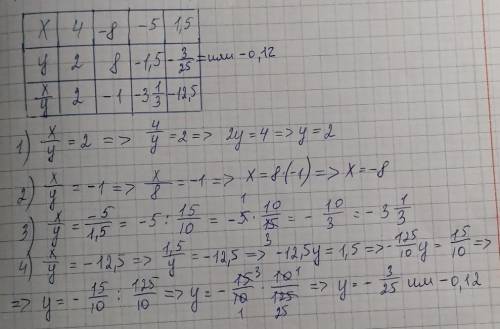 x 4 -8 -5 1,5
y 2 8 -1,5 -3/25 = или -0,12
x/y 2 -1 -3 1/3 -12,5
1) x/y = 2 => 4/y = 2 => 2y = 4 => y = 2
2) x/y = -1 => x/8 = -1 => x = 8·(-1) => x = -8
3) x/y = -5/1,5 = -5 : 15/10 = -5 1 · 10/15 3 = -10/3 = -3 1/3
4) x/y = -12,5 => 1,5/y = -12,5 => -12,5y = 1,5 => -125/10 y = 15/10 =>
=> y = -15/10 : 125/10 => y = -15 3/10 1 · 10 1/125 25 => y = -3/25 или -0,12